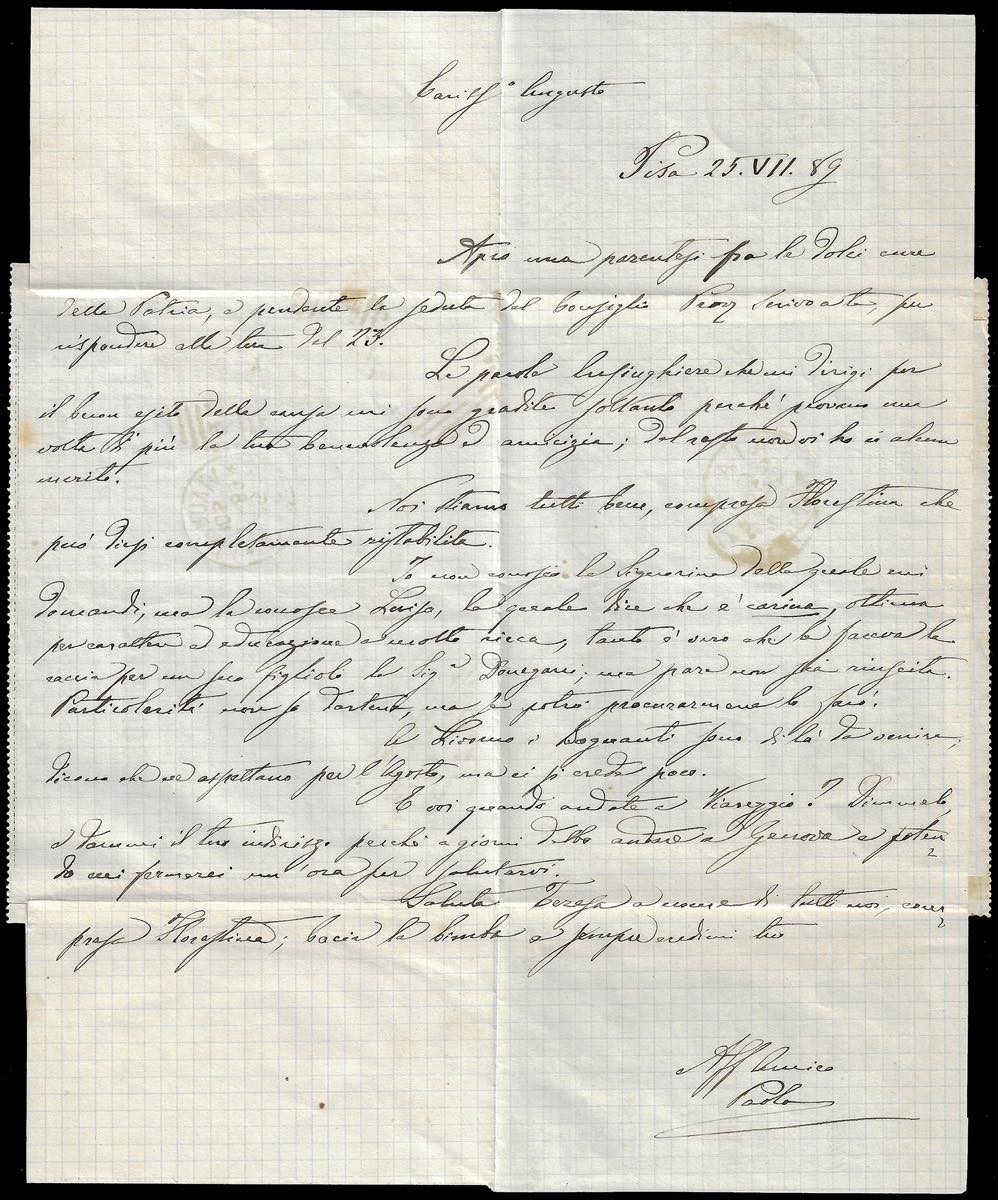 Cariss.º Augusto
Pisa 25.VII.89
Apro una parentesi fra le dolci cure
della Patria, e pendente la seduta del Consiglio Prov scrivo a te, per
rispondere alla tua del 23.
Le parole lusinghiere che mi dirigi per
il buon esito della causa mi sono gradite soltanto perché provano una
volta di più la tua benevolenza ed amicizia; del resto non vi ho io alcun
merito.
Noi stiamo tutti bene, compresa Florestina che
può dirsi completamente ristabilita.
Io non conosco la Signorina della quale mi
domandi, ma la conosce Luisa, la quale dice che è carina, ottima
per carattere ed educazione e molto ricca, tanto è vero che le faceva la
caccia per un suo figliolo la Sigª Donegani; ma pare non sia riuscita.
Particolarità non so dartene, ma se potrò procurarmene lo farò.
A Livorno i Bagnanti sono di là da venire;
dicono che ne aspettano per l'Agosto, ma ci si crede poco.
E voi quando andate a Viareggio? Dimmelo,
e dammi il tuo indirizzo perché a giorni debbo andare a Genova e poten=
do mi fermerei un'ora per salutarvi.
Saluta Teresa a nome di tutti noi, com=
presa Florestina; bacia la bimba e sempre credimi tuo
Aff Amico
Paolo